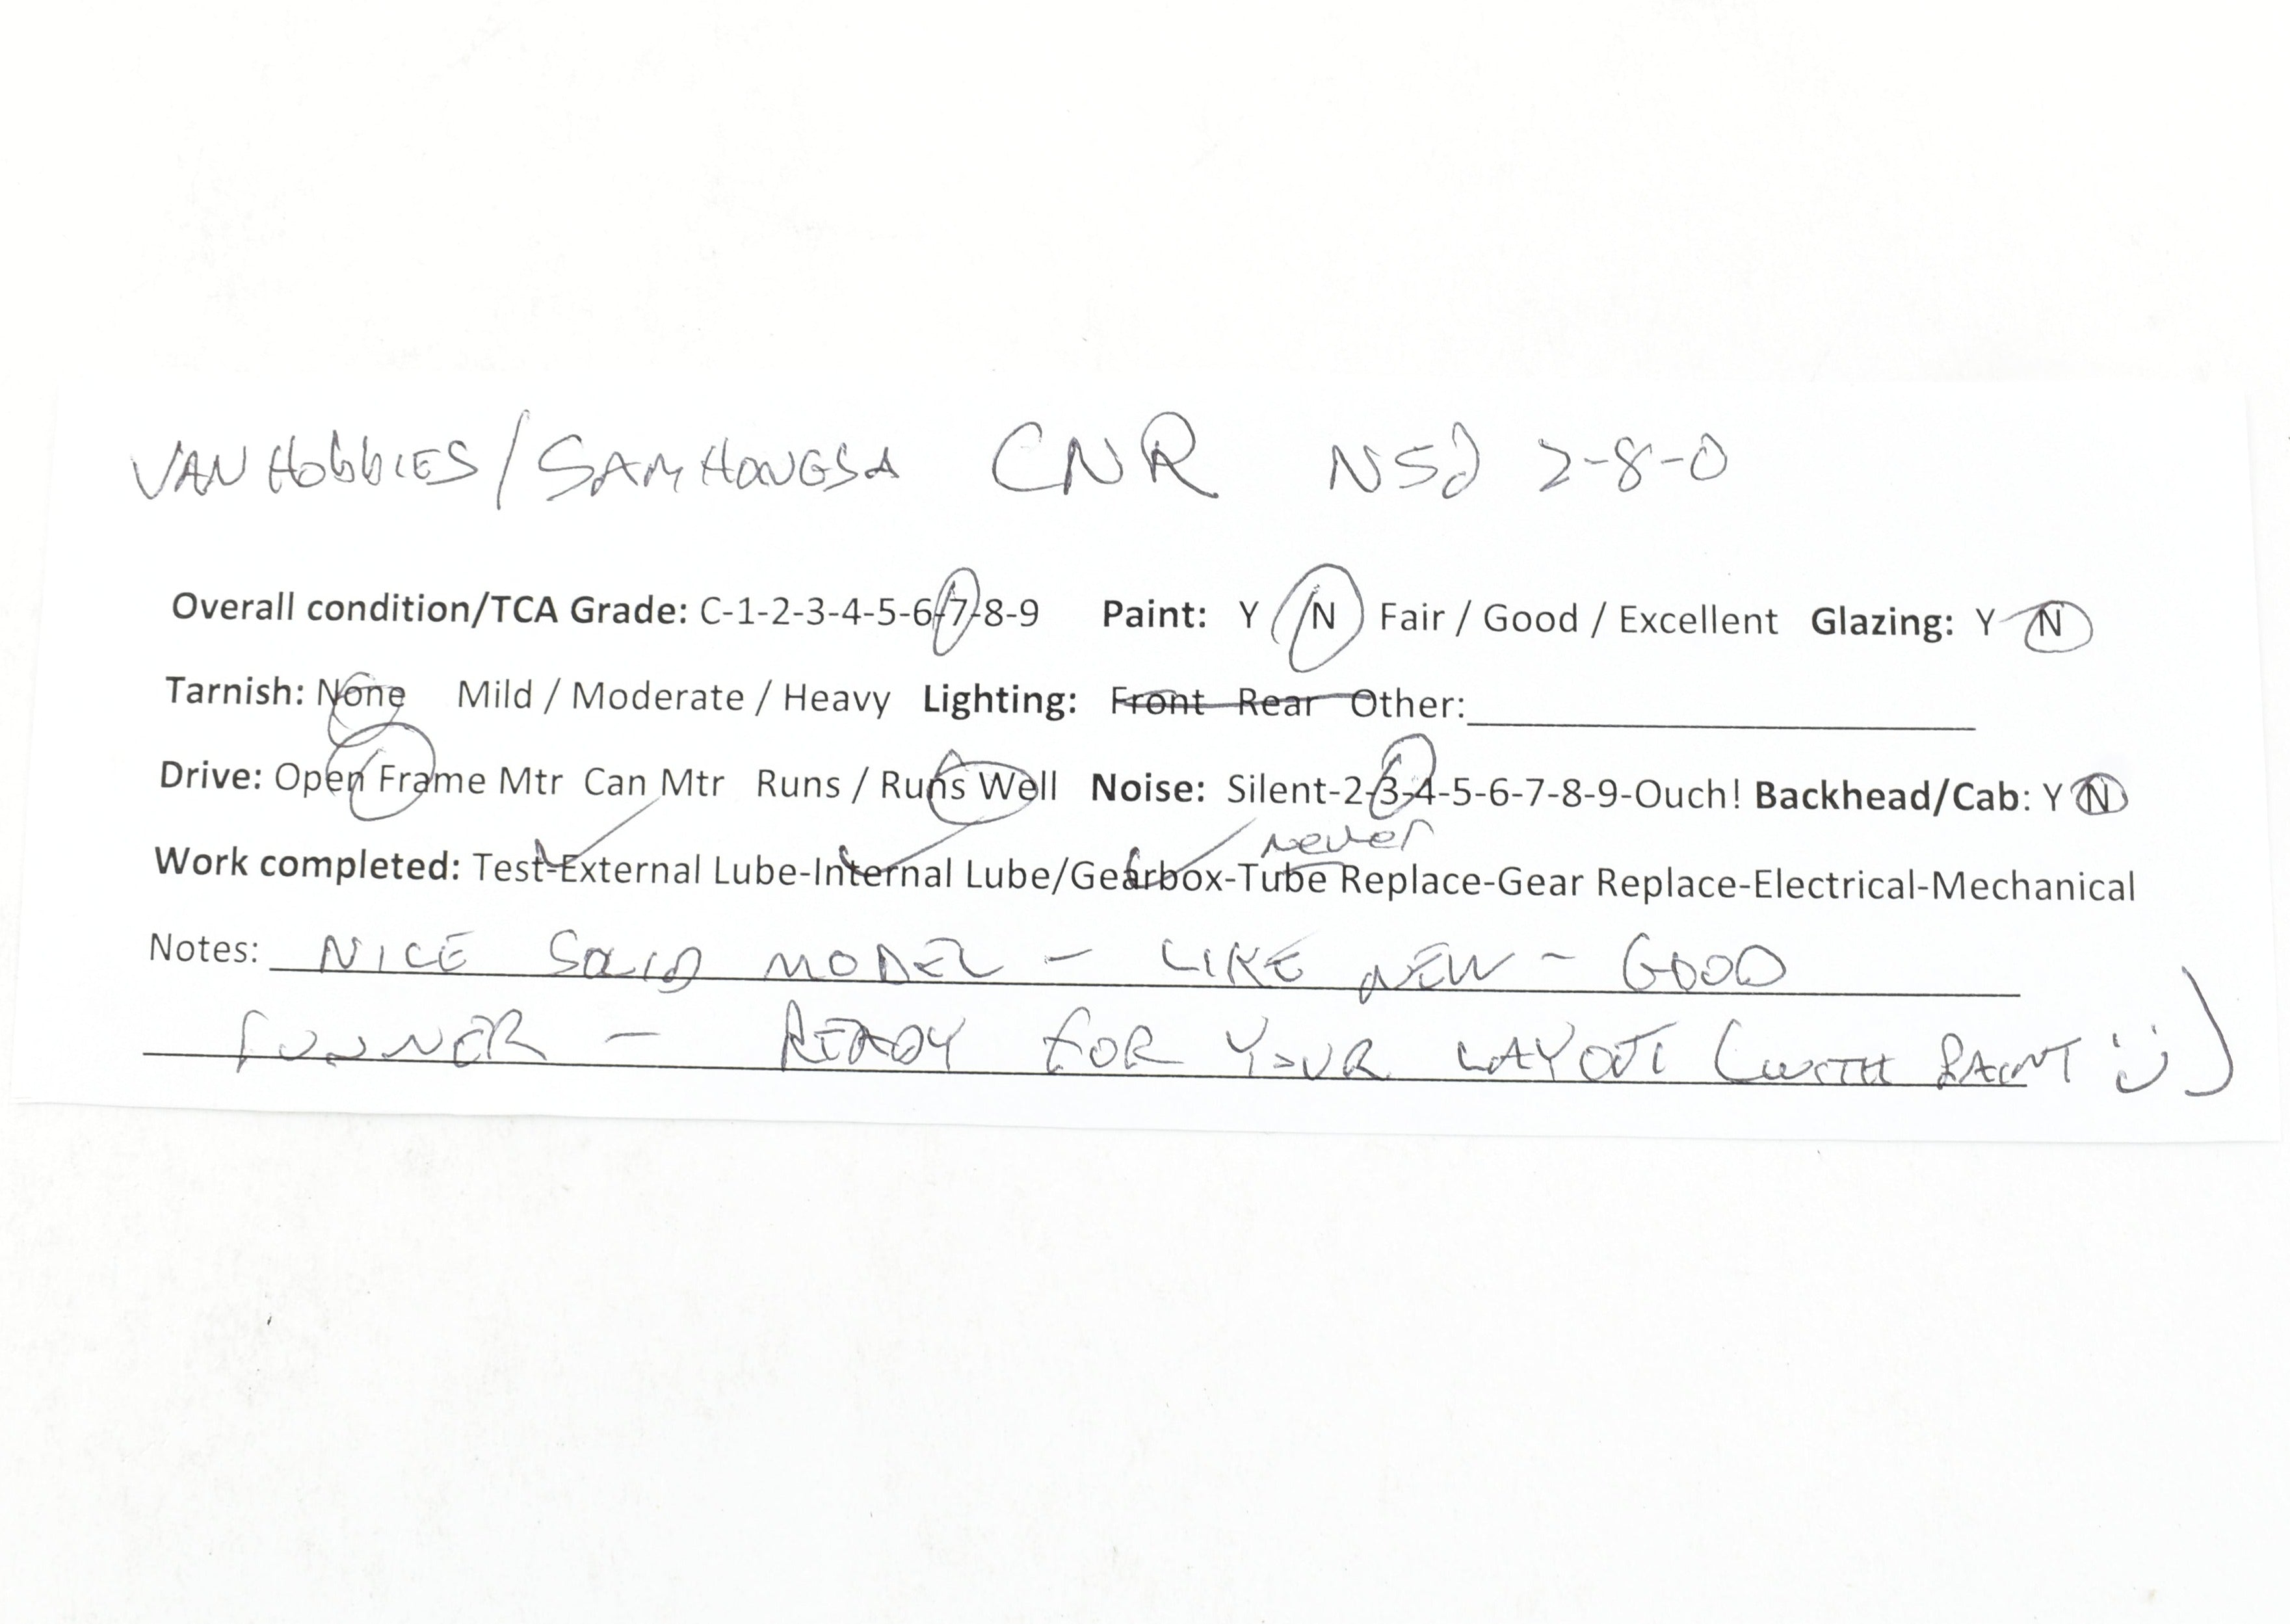 VAN HOBBIES/SAMHONGSA CNR N5d 2-8-0
Overall condition/TCA Grade: C-1-2-3-4-5-6-7-8-9 Paint: Y / N Fair / Good / Excellent Glazing: Y N
Tarnish: None Mild / Moderate / Heavy Lighting: Front Rear Other:
Drive: Open Frame Mtr Can Mtr Runs / Runs Well Noise: Silent-2-3-4-5-6-7-8-9-Ouch! Backhead/Cab: Y N
never
Work completed: Test-External Lube-Internal Lube/Gearbox-Tube Replace-Gear Replace-Electrical-Mechanical
Notes: NICE SOLID MODEL - LIKE NEW - GOOD
RUNNER - READY FOR YOUR LAYOUT (WITH PAINT :))